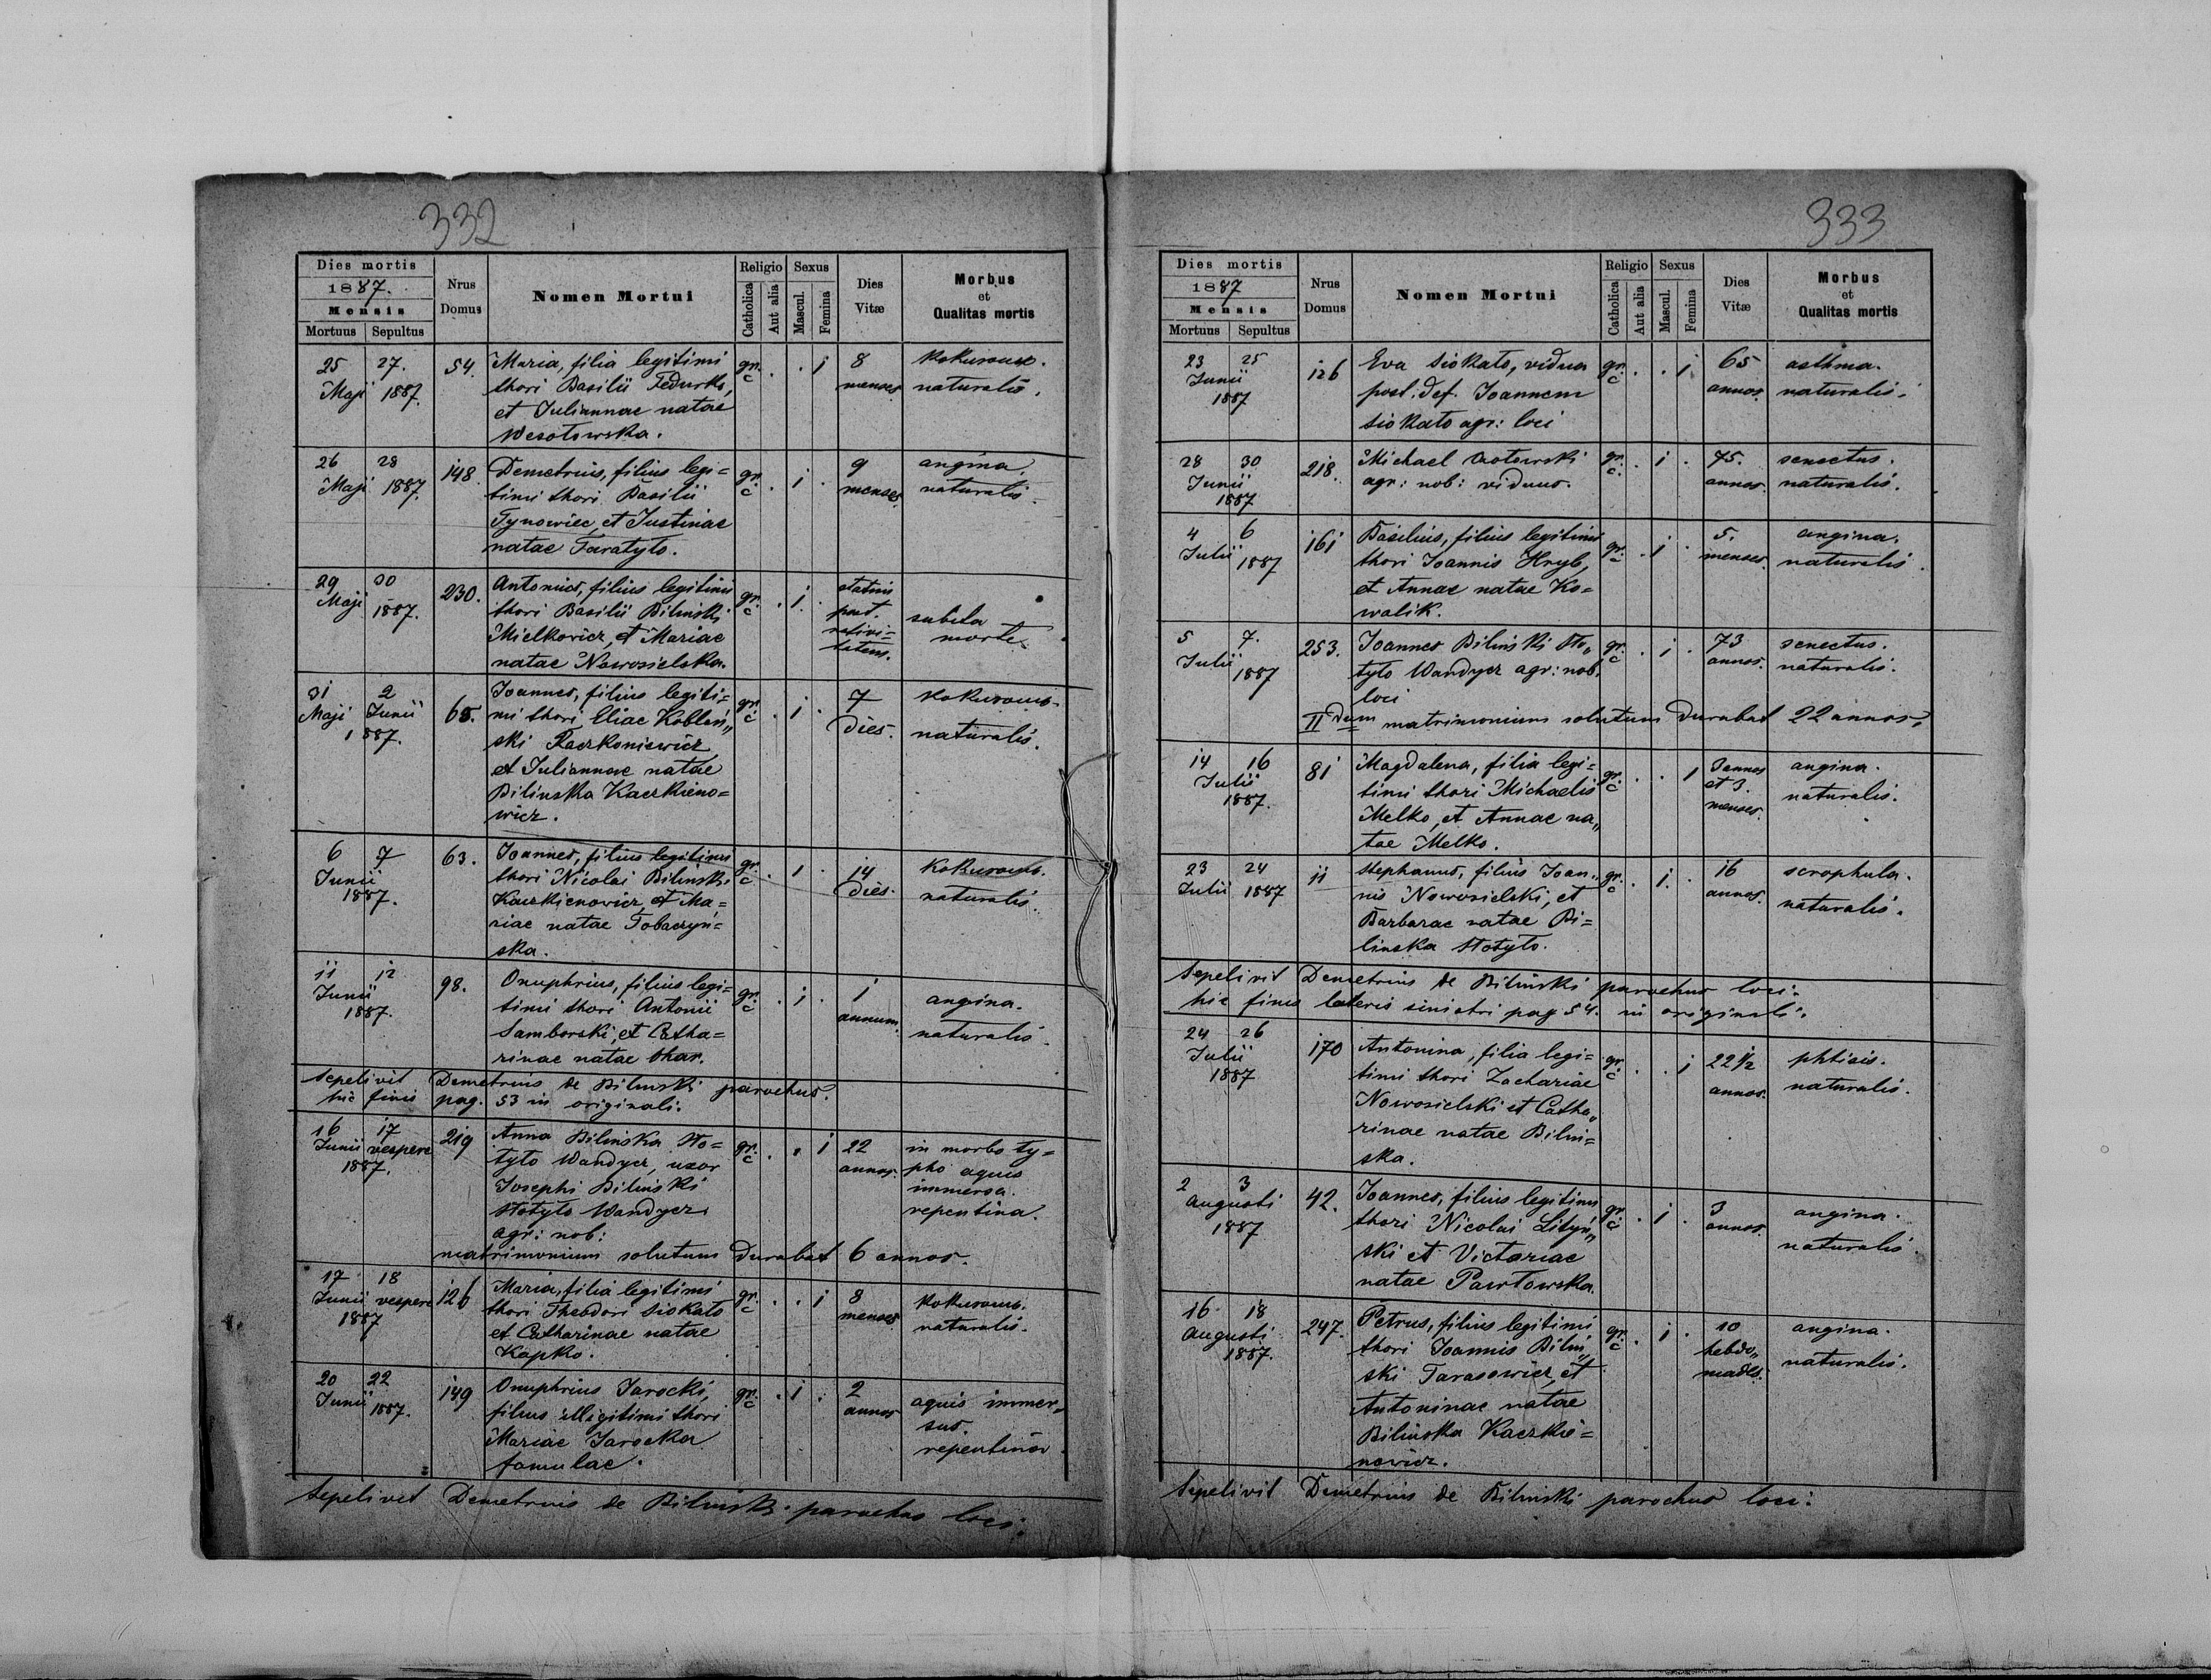 332
Dies mortis
1887.
Mensis
Mortuus Sepultus
Nrus Domus
Nomen Mortui
Religio
Catholica
Aut alia
Sexus
Mascul.
Femina
Dies Vitæ
Morbus
et
Qualitas mortis
25 27. 54. Maria, filia legitimi gr. . . 1 8 kokurous.
Maji 1887. thori Basilii Fedurko, c menses naturalis.
et Juliannae natae
Wesołowska.
26 28 148 Demetrius, filius legi= gr. . 1 . 9 angina.
Maji 1887. timi thori Basilii c menses naturalis.
Tynowiec, et Justinae
natae Taratyło.
29 30 230. Antonius, filius legitimi gr. . 1. statim
Maji 1887. thori Basilii Biliński c post subita
Mielkowicz, et Mariae nativi= morte
natae Nowosielska. tatem.
31 2 65. Joannes, filius legiti= gr. . 1 . 7 kokurous.
Maji Junii mi thori Eliae Kobleń„ c dies. naturalis.
1887. ski Raczkoniewicz
et Juliannae natae
Bilinska Kaczkieno=
wicz.
6 7 63. Joannes, filius legitimi gr. . 1 . 14 kokurous.
Junii thori Nicolai Biliński c dies. naturalis.
1887. Kaczkienowicz, et Ma=
riae natae Tobaczyń=
ska.
11 12 98. Onuphrius, filius legi= gr. . 1 . 1 angina.
Junii timi thori Antonii c annum. naturalis.
1887. Samborski, et Catha=
rinae natae
Sepelivit Demetrius de Biliński parochus.
hic finis pag. 53 in originali.
16 17 219 Anna Bilińska Sto= gr. . . 1 22 in morbo ty=
Junii vespere tyło Wandycz, uxor c annos. pho aquis
1887. Josephi Biliński immersa.
Stotyło Wandycz repentina.
agr: nob:
matrimonium solutum durabat 6 annos.
17 18 126 Maria, filia legitimi gr. . . 1 8 kokurous.
Junii vespere thori Theodori Siokało c menses naturalis.
1887 et Catharinae natae
Kapko.
20 22 149 Onuphrius Jarocki, gr. . 1 . 2 aquis immer„
Junii 1887. filius illigitimi thori c annos sus.
Mariae Jarocka repentinus
famulae.
Sepelivit Demetrius de Biliński parochus loci.
333
Dies mortis
1887
Mensis
Mortuus Sepultus
Nrus Domus
Nomen Mortui
Religio
Catholica
Aut alia
Sexus
Mascul.
Femina
Dies Vitæ
Morbus
et
Qualitas mortis
23 25 126 Eva Siokało, vidua gr. . . 1. 65 asthma.
Junii post. def. Joannem c annos. naturalis.
1887 Siokało agr: loci
28 30 218. Michael gr. . 1 . 75. senectus.
Junii agr: nob: viduus. c. annos. naturalis.
1887
4 6 161 Basilius, filius legitimi gr. . 1 . 5. angina.
Julii 1887 thori Joannis Hryb, c menses. naturalis.
et Annae natae Ko=
walik.
5 7. 253. Joannes Biliński Sto„ gr. . 1 . 73 senectus.
Julii 1887 tyło Wandycz agr: nob. c annos. naturalis.
loci
II dum matrimonium solutum durabat 22 annos.
14 16 81 Magdalena, filia legi= gr. . . 1 3 annos angina.
Julii timi thori Michaelis c et 3. naturalis.
1887. Melko, et Annae na„ menses.
tae Melko.
23 24 11 Stephanus, filius Joan„ gr. . 1. 16 scrophula.
Julii 1887 nis Nowosielski, et c annos. naturalis.
Barbarae natae Bi=
linska Stotyło.
Sepelivit Demetrius de Biliński parochus loci.
hic finis lateris sinistri pag 54. in originali.
24 26 170 Antonina, filia legi= gr. . . 1 22 1/2 phtisis.
Julii timi thori Zachariae c annos. naturalis.
1887 Nowosielski et Catha„
rinae natae Biliń=
ska.
2 3 42. Joannes, filius legitimi gr. . 1 . 3 angina.
Augusti thori Nicolai Lityń„ c annos. naturalis.
1887 ski et Victoriae
natae Pawłowska.
16 18 247. Petrus, filius legitimi gr. . 1 . 10 angina.
Augusti thori Joannis Biliń„ c hebdo„ naturalis.
1887. ski Tarasowicz, et mades.
Antoninae natae
Bilińska Kaczkie=
nowicz.
Sepelivit Demetrius de Biliński parochus loci.